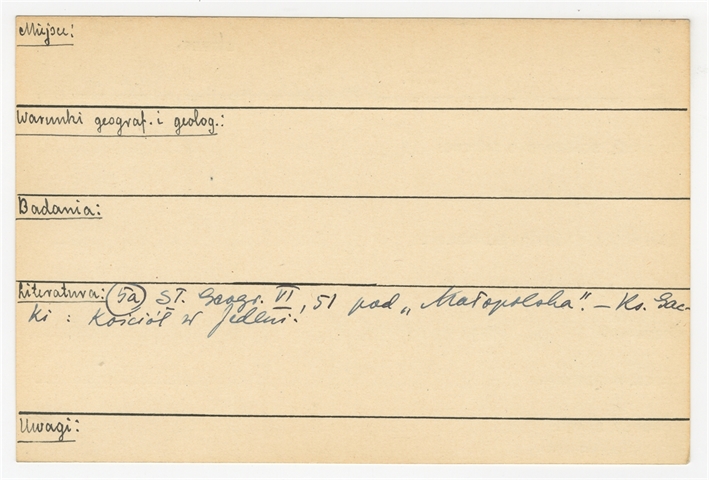 Miejsce:
Warunki geograf. i geolog.:
Badania:
Literatura: 5a St. Geogr. VI, 51 pod „Małopolska". – Ks. Gac-
ki: Kościół w Jedlni.
Uwagi: